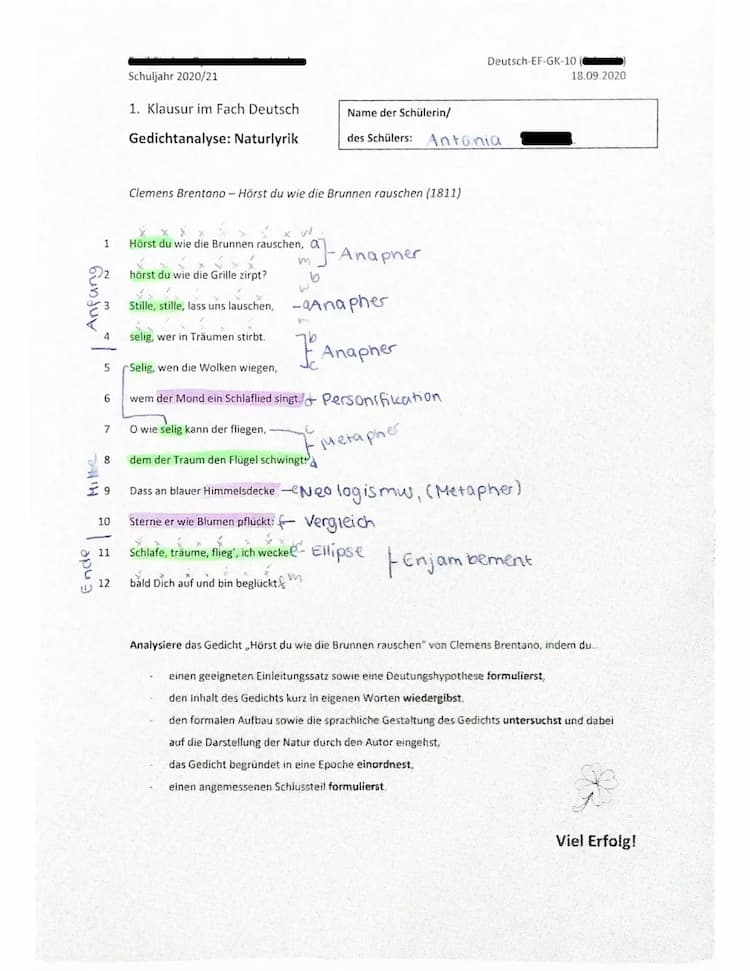 Deutsch-EF-GK-10 (
Schuljahr 2020/21
18.09.2020
1. Klausur im Fach Deutsch
Gedichtanalyse: Naturlyrik
Name der Schülerin/
des Schülers: Antonia
Clemens Brentano – Hörst du wie die Brunnen rauschen (1811)
x x x x x x x w
1 Hörst du wie die Brunnen rauschen, a Anapher
m
2 hörst du wie die Grille zirpt? b
w
3 Stille, stille, lass uns lauschen, a Anapher
m
4 selig, wer in Träumen stirbt. b
Anapher
5 Selig, wen die Wolken wiegen, c
6 wem der Mond ein Schlaflied singt! d Personifikation
7 O wie selig kann der fliegen, c
Metapher
8 dem der Traum den Flügel schwingt, d
9 Dass an blauer Himmelsdecke e Neologismus, (Metapher)
10 Sterne er wie Blumen pflückt: f Vergleich
11 Schlafe, träume, flieg', ich wecke e Ellipse
Enjambement
12 bald Dich auf und bin beglückt. f m
Anfang
Mitte
Ende
Analysiere das Gedicht „Hörst du wie die Brunnen rauschen“ von Clemens Brentano, indem du...
- einen geeigneten Einleitungssatz sowie eine Deutungshypothese formulierst,
- den Inhalt des Gedichts kurz in eigenen Worten wiedergibst,
- den formalen Aufbau sowie die sprachliche Gestaltung des Gedichts untersuchst und dabei
auf die Darstellung der Natur durch den Autor eingehst,
- das Gedicht begründet in eine Epoche einordnest,
- einen angemessenen Schlussteil formulierst.
Viel Erfolg!